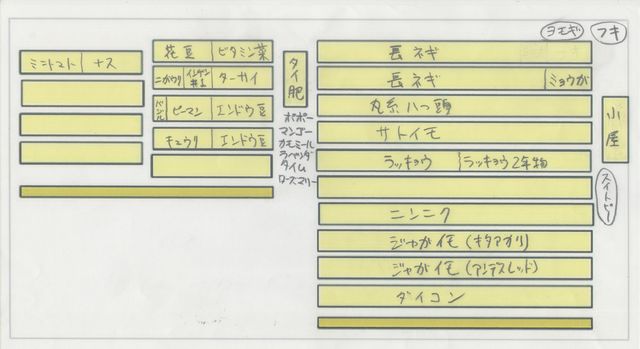 ヨモギ フキ
ミニトマト ナス
花豆 ビタミン菜
ニガウリ インゲン ターサイ
バジル ピーマン エンドウ豆
キュウリ エンドウ豆
タイ肥
ポポー
マンゴー
カモミール
ラベンダー
タイム
ローズマリー
長ネギ
長ネギ ミョウガ
丸系八つ頭
サトイモ
ラッキョウ ラッキョウ2年物
ニンニク
ジャガイモ(キタアカリ)
ジャガイモ(アンデスレッド)
ダイコン
小屋
スイトピー